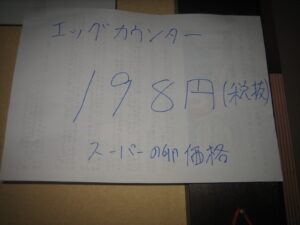 エッグカウンター
198円(税抜)
スーパーの卵価格